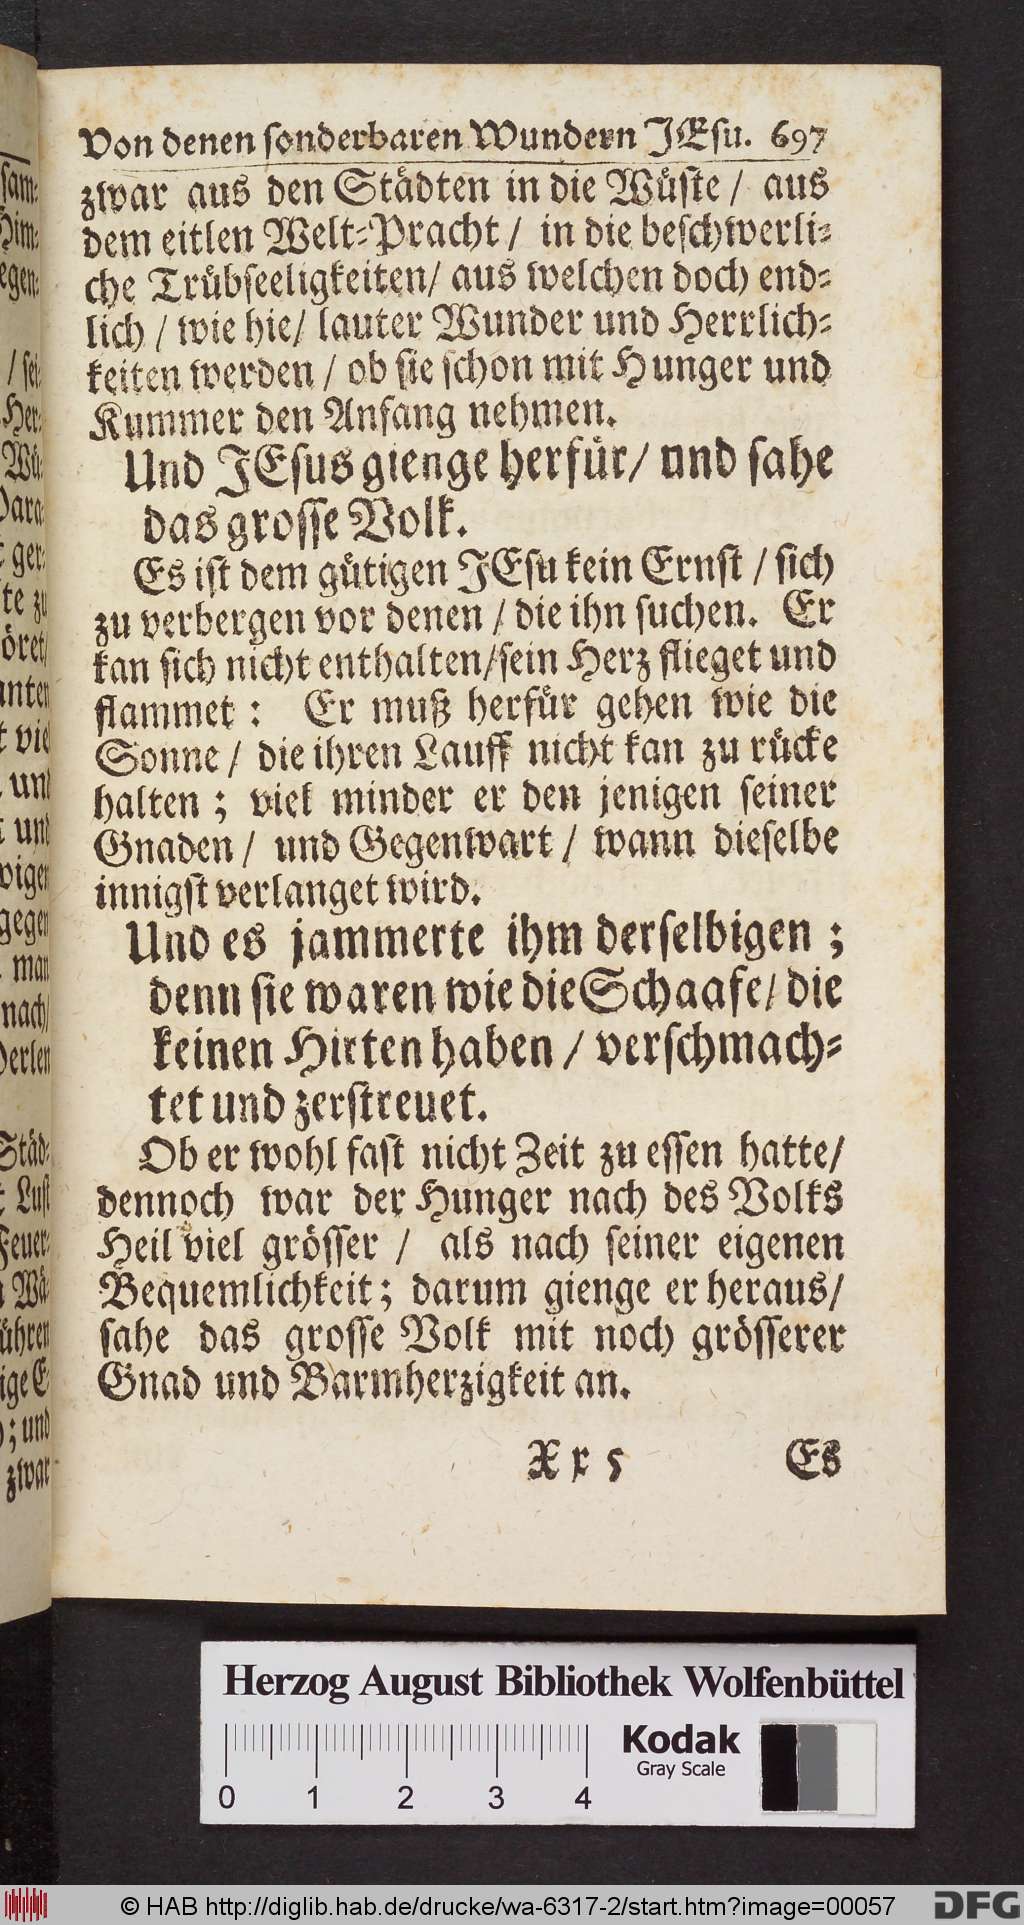 Von denen sonderbaren Wundern JEsu. 697
zwar aus den Städten in die Wüste / aus
dem eitlen Welt-Pracht / in die beschwerli-
che Trübseeligkeiten / aus welchen doch end-
lich / wie hie / lauter Wunder und Herrlich-
keiten werden / ob sie schon mit Hunger und
Kummer den Anfang nehmen.
Und JEsus gienge herfür / und sahe
das grosse Volk.
Es ist dem gütigen JEsu kein Ernst / sich
zu verbergen vor denen / die ihn suchen. Er
kan sich nicht enthalten / sein Herz flieget und
flammet : Er muß herfür gehen wie die
Sonne / die ihren Lauff nicht kan zu rücke
halten ; viel minder er den jenigen seiner
Gnaden / und Gegenwart / wann dieselbe
innigst verlanget wird.
Und es jammerte ihm derselbigen ;
denn sie waren wie die Schaafe / die
keinen Hirten haben / verschmach-
tet und zerstreuet.
Ob er wohl fast nicht Zeit zu essen hatte /
dennoch war der Hunger nach des Volks
Heil viel grösser / als nach seiner eigenen
Bequemlichkeit ; darum gienge er heraus /
sahe das grosse Volk mit noch grösserer
Gnad und Barmherzigkeit an.
Xx 5 Es
Herzog August Bibliothek Wolfenbüttel
Kodak
Gray Scale
0 1 2 3 4
© HAB http://diglib.hab.de/drucke/wa-6317-2/start.htm?image=00057
DFG